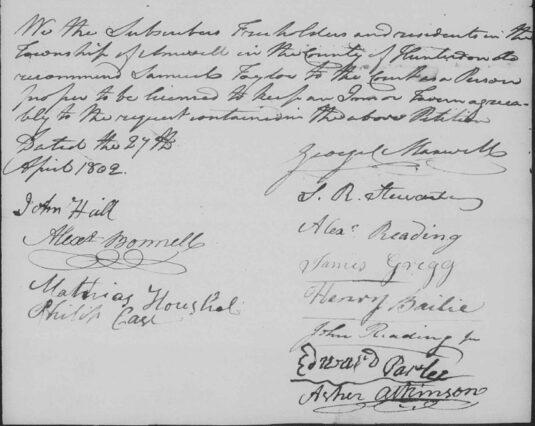 We the Subscribers Freeholders and residents in the
Township of Amwell in the County of Hunterdon do
recommend Samuel Taylor to the Court as a Person
proper to be licensed to keep an Inn or Tavern agreea-
bly to the request contained in the above Petition
Dated the 27th
April 1802.
George C Maxwell
S. R. Stewart
John Hall
Alexr. Reading
Alexr Bonnell
James Gregg
Mathias Houshel
Henry Bailie
Philip Case
John Reading Jr
Edward Parlee
Asher Atkinson